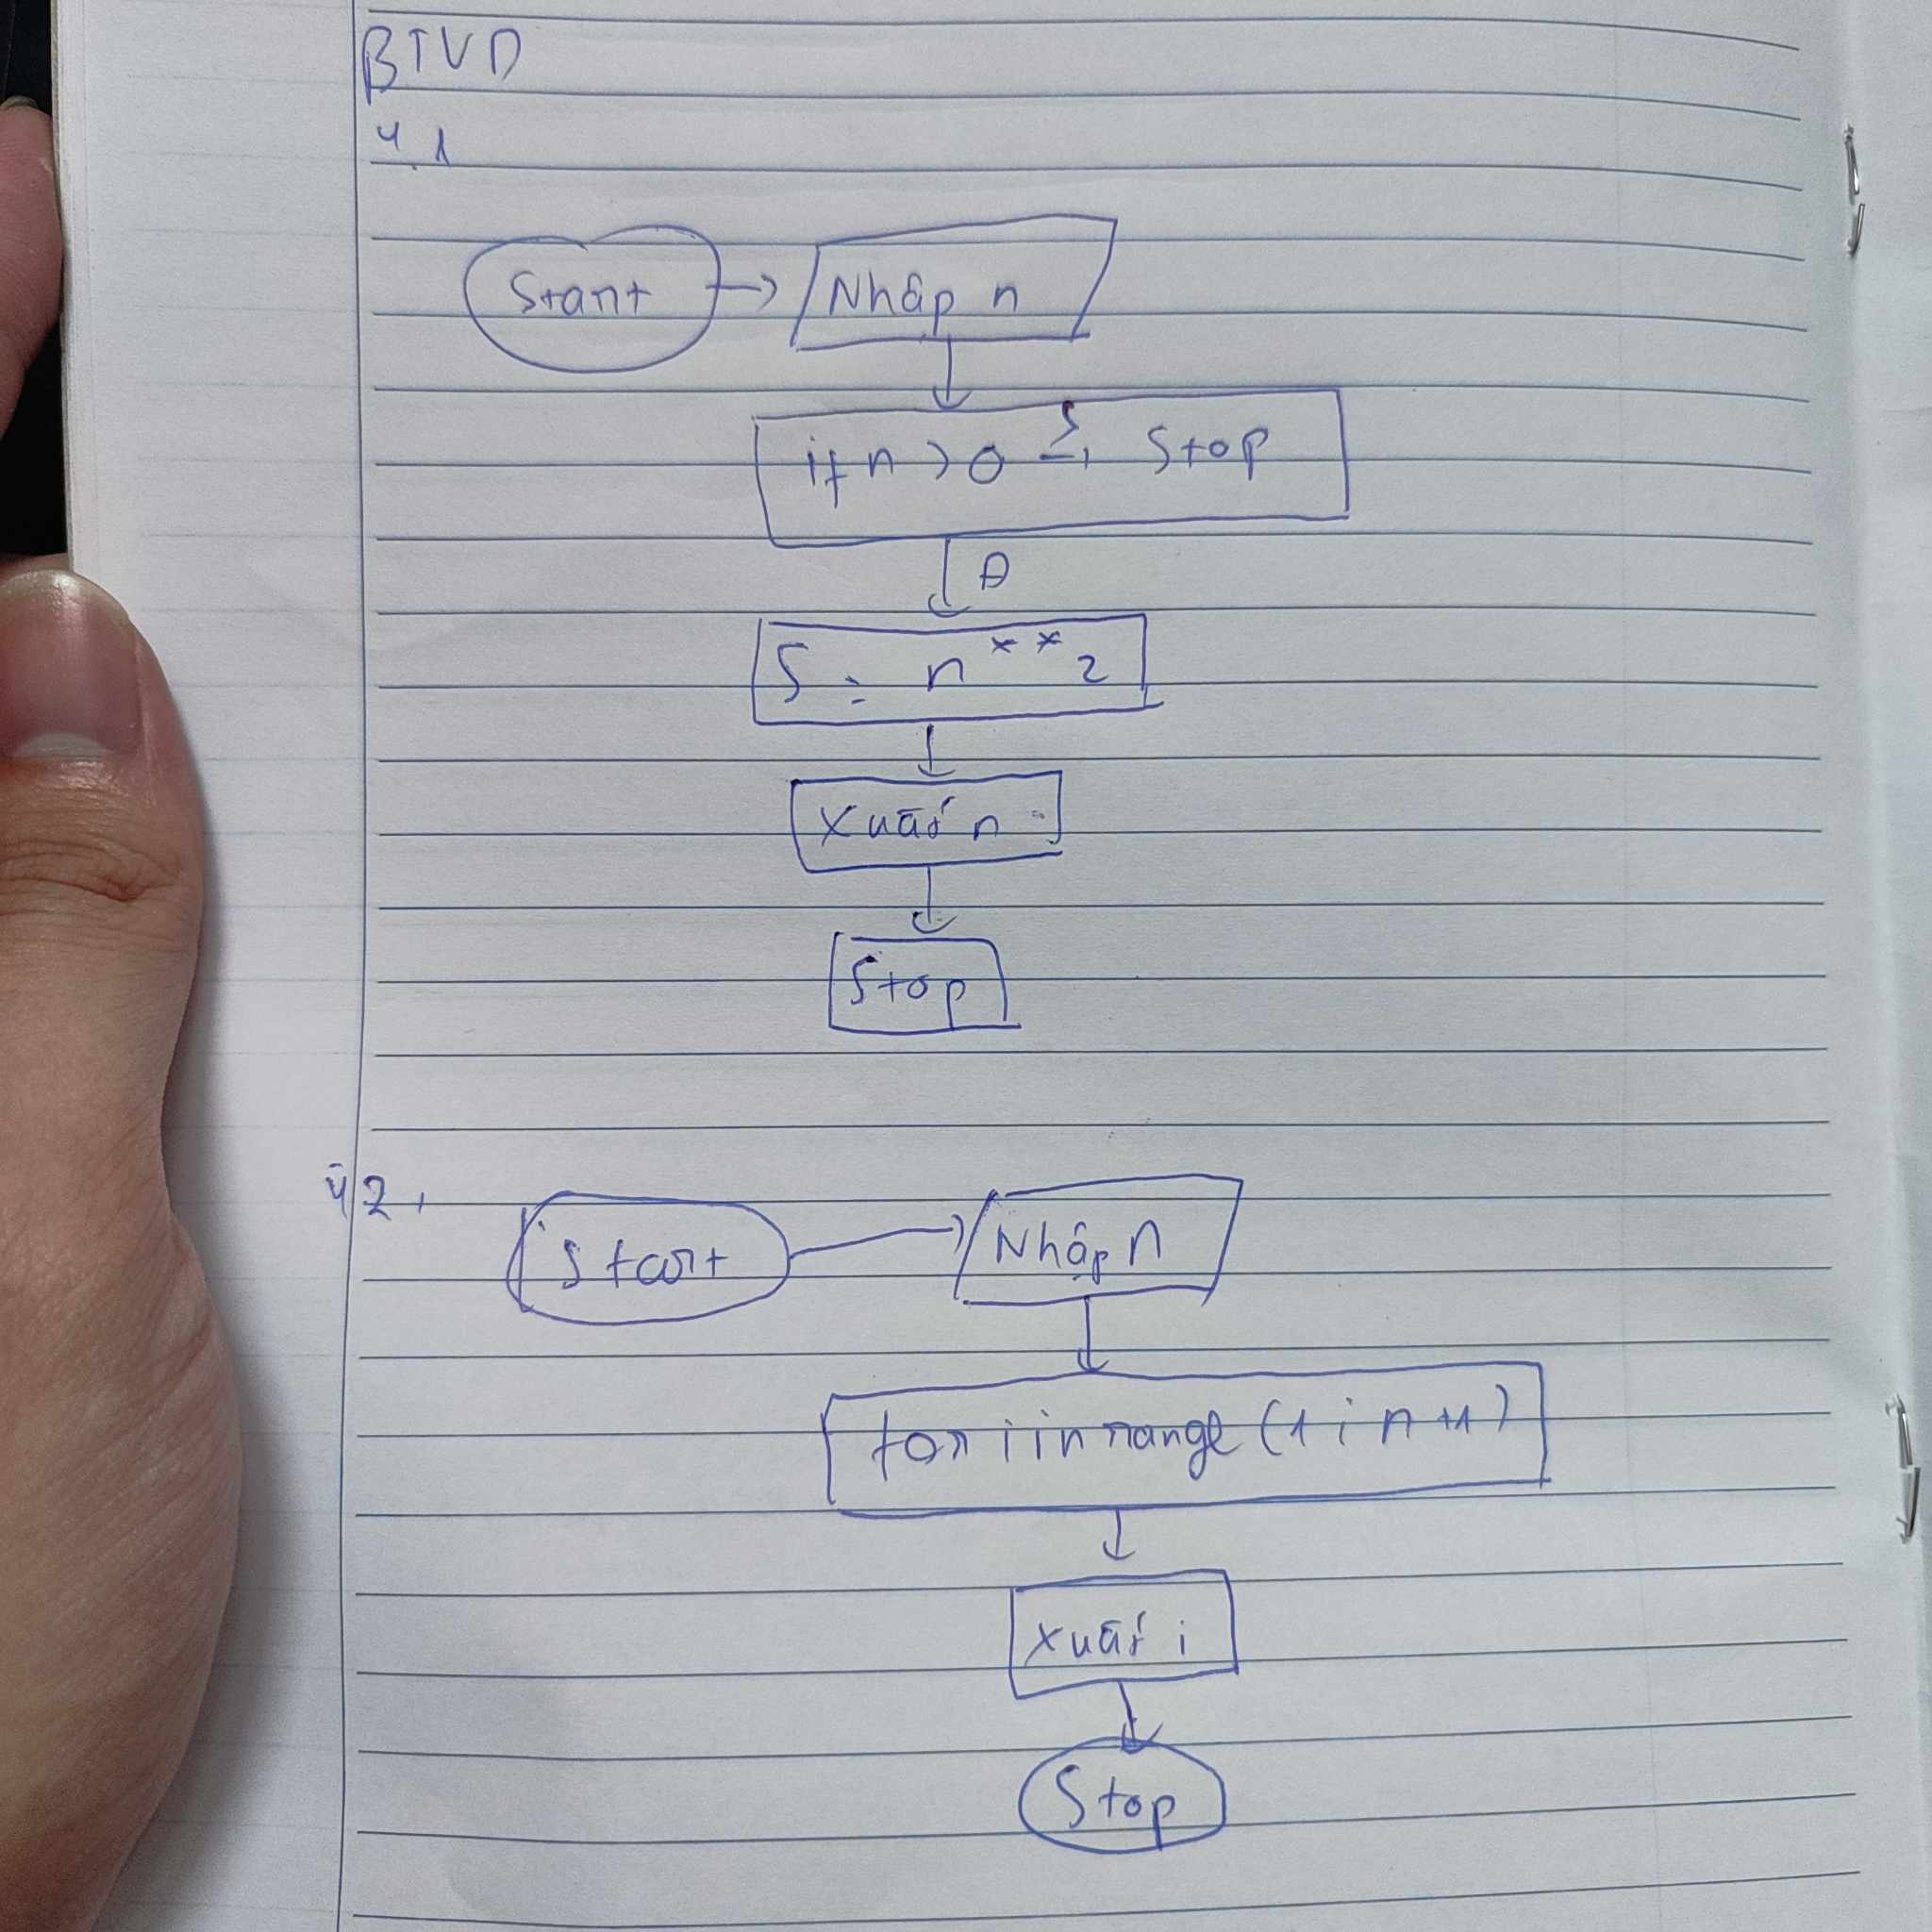 BTVD
4.1
Start → Nhập n
if n > 0 S→ Stop
Đ
S = n**2
Xuất n
Stop
4.2,
Start → Nhập n
for i in range (1; n+1)
Xuất i
Stop